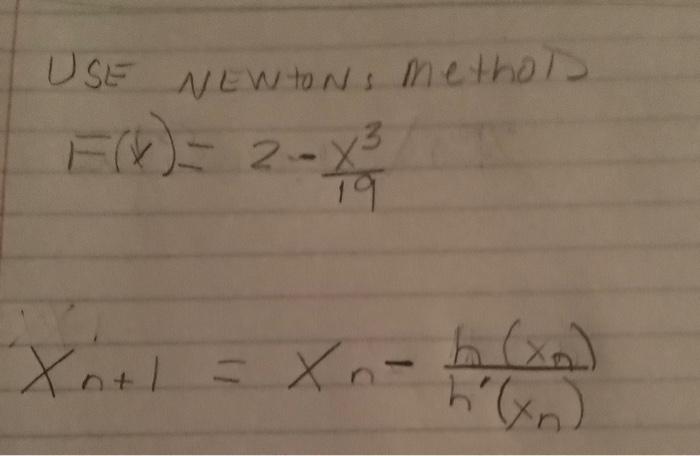 USE NEWtONs methoD
F(x) = 2 - x³/19
Xn+1 = Xn - h(xn)/h'(xn)